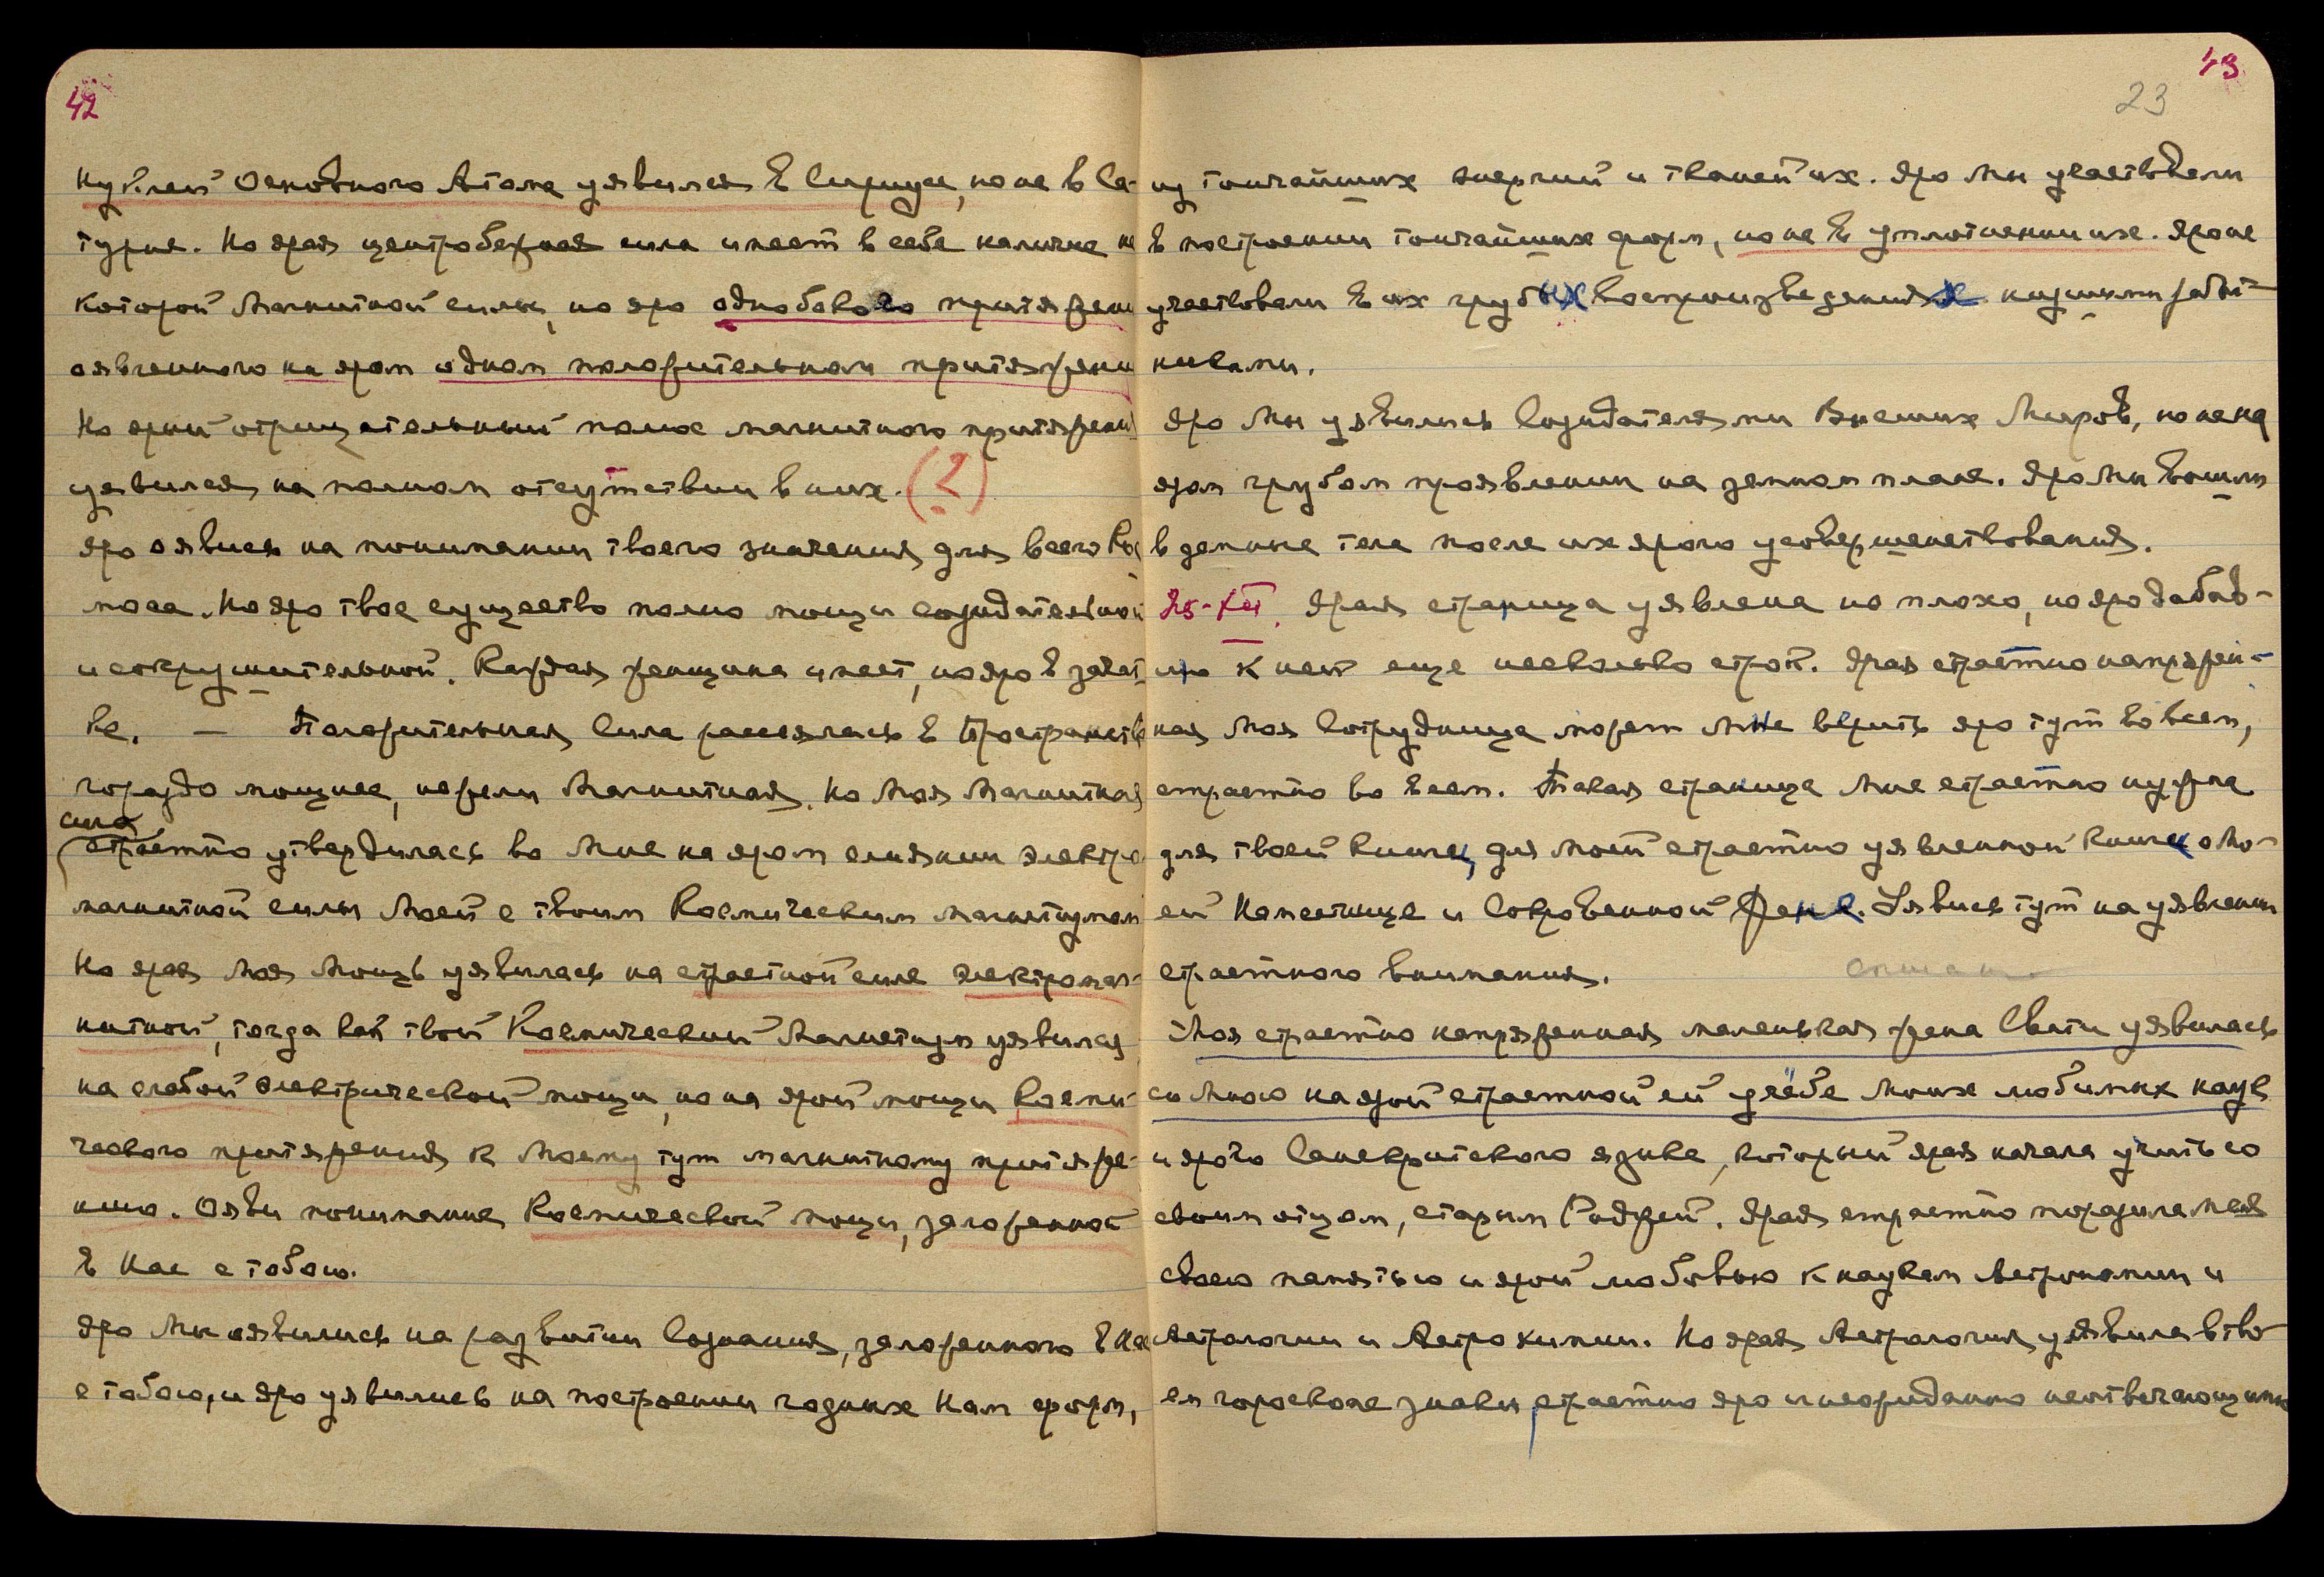 42
нуклей Основного Атома уявился в Сириусе, но не в Са-
турне. Но ярая центробежная сила имеет в себе наличие не
которой Магнитной силы, но яро однобокого притяжени
оявленного на яром одном положительном притяжени
Но ярый отрицательный полюс магнитного притяжени
уявился на полном отсутствии в них. (?)
Яро оявись на понимании твоего значения для всего Кос
моса. Но яро твое существо полно мощи созидательной
и сокрушительной. Каждая женщина имеет, но яро в зачат
ке. — Положительная Сила рассеялась в Пространств
гораздо мощнее, нежели Магнитная. Но Моя Магнитная
сила
страстно утвердилась во Мне на яром слиянии электро
магнитной силы Моей с твоим Космическим магнетизмом
Но ярая Моя Мощь уявилась на страстной силе электромаг-
нитной, тогда как твой Космический Магнетизм уявился
на слабой электрической мощи, но на ярой мощи Косми-
ческого притяжения к Моему тут магнитному притяже-
нию. Ояви понимание Космической мощи, заложенной
в Нас с тобою.
Яро Мы оявились на развитии Сознания, заложенного в Нас
с тобою, и яро уявились на построении годных Нам форм,
43
23
из тончайших энергий и тканей их. Яро Мы участвовали
в построении тончайших форм, но не в уплотнении их. Яро не
участвовали в их грубых воспроизведениях низшими работ-
никами.
Яро Мы уявились Создателями Высших Миров, но не на
яром грубом проявлении на земном плане. Яро Мы вошли
в земные тела после их ярого усовершенствования.
25-XII. Ярая страница уявлена не плохо, но яро добав-
лю к ней еще несколько строк. Ярая страстно напряжен-
ная Моя Сотрудница может Мне верить яро тут во всем,
страстно во всем. Такая страница Мне страстно нужна
для твоей книги, для Моей страстно уявленной книги о Мо-
ей Наместнице и Сокровенной Жене. Уявись тут на уявлении
страстного внимания.
Моя страстно напряженная маленькая жена Свати уявилась
со Мною на ярой страстной ей учебе Моих любимых наук
и ярого Санскритского языка, который ярая начала учить со
своим отцом, старым Раджей. Ярая страстно поразила Меня
своею памятью и ярой любовью к наукам Астрономии и
Астрологии и Астрохимии. Но ярая Астрология уявила в тво-
ем гороскопе знаки, страстно яро и неожиданно неотвечающими